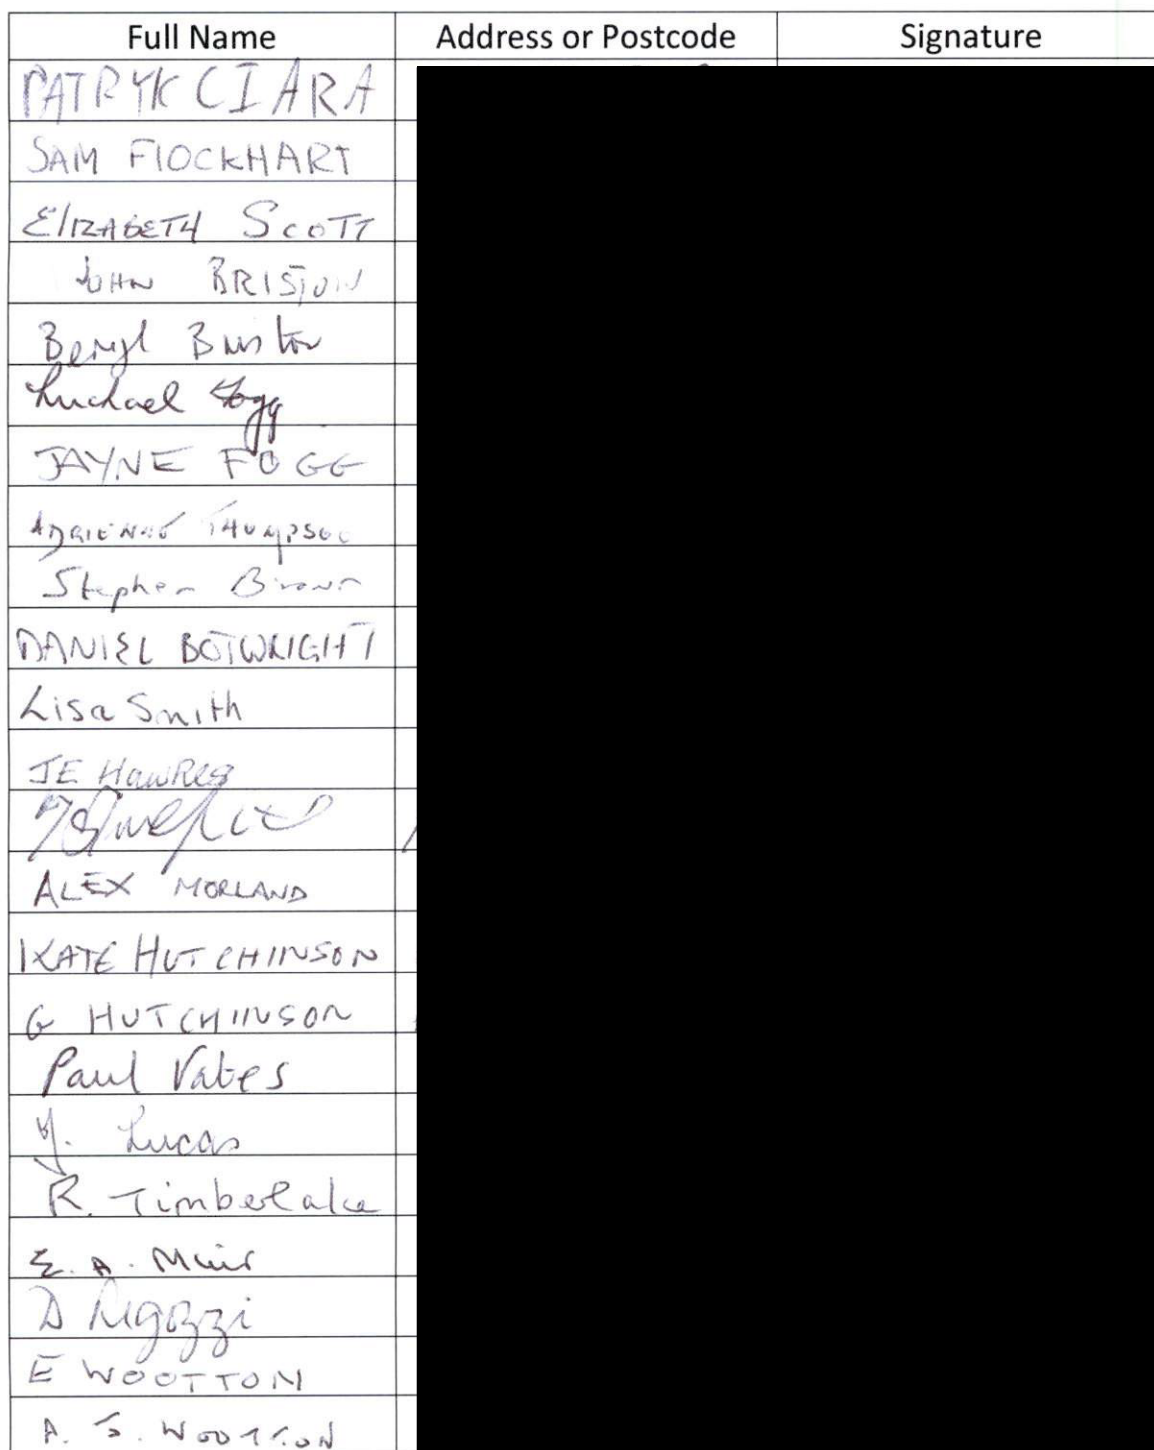 Full Name Address or Postcode Signature
PATRYK CIARA
SAM FlOCKHART
ElIZABETH SCOTT
JOHN BRISTOW
Beryl Bristow
Michael Fogg
JAYNE FOGG
ADRIENNE THOMPSON
Stephen Brown
DANIEL BOTWRIGHT
Lisa Smith
JE HAWKES
ALEX MORLAND
KATE HUTCHINSON
G HUTCHINSON
Paul Vates
Y. Lucas
R. Timberlake
E. A. Muir
D Rigozzi
E WOOTTON
A. S. WOOTTON